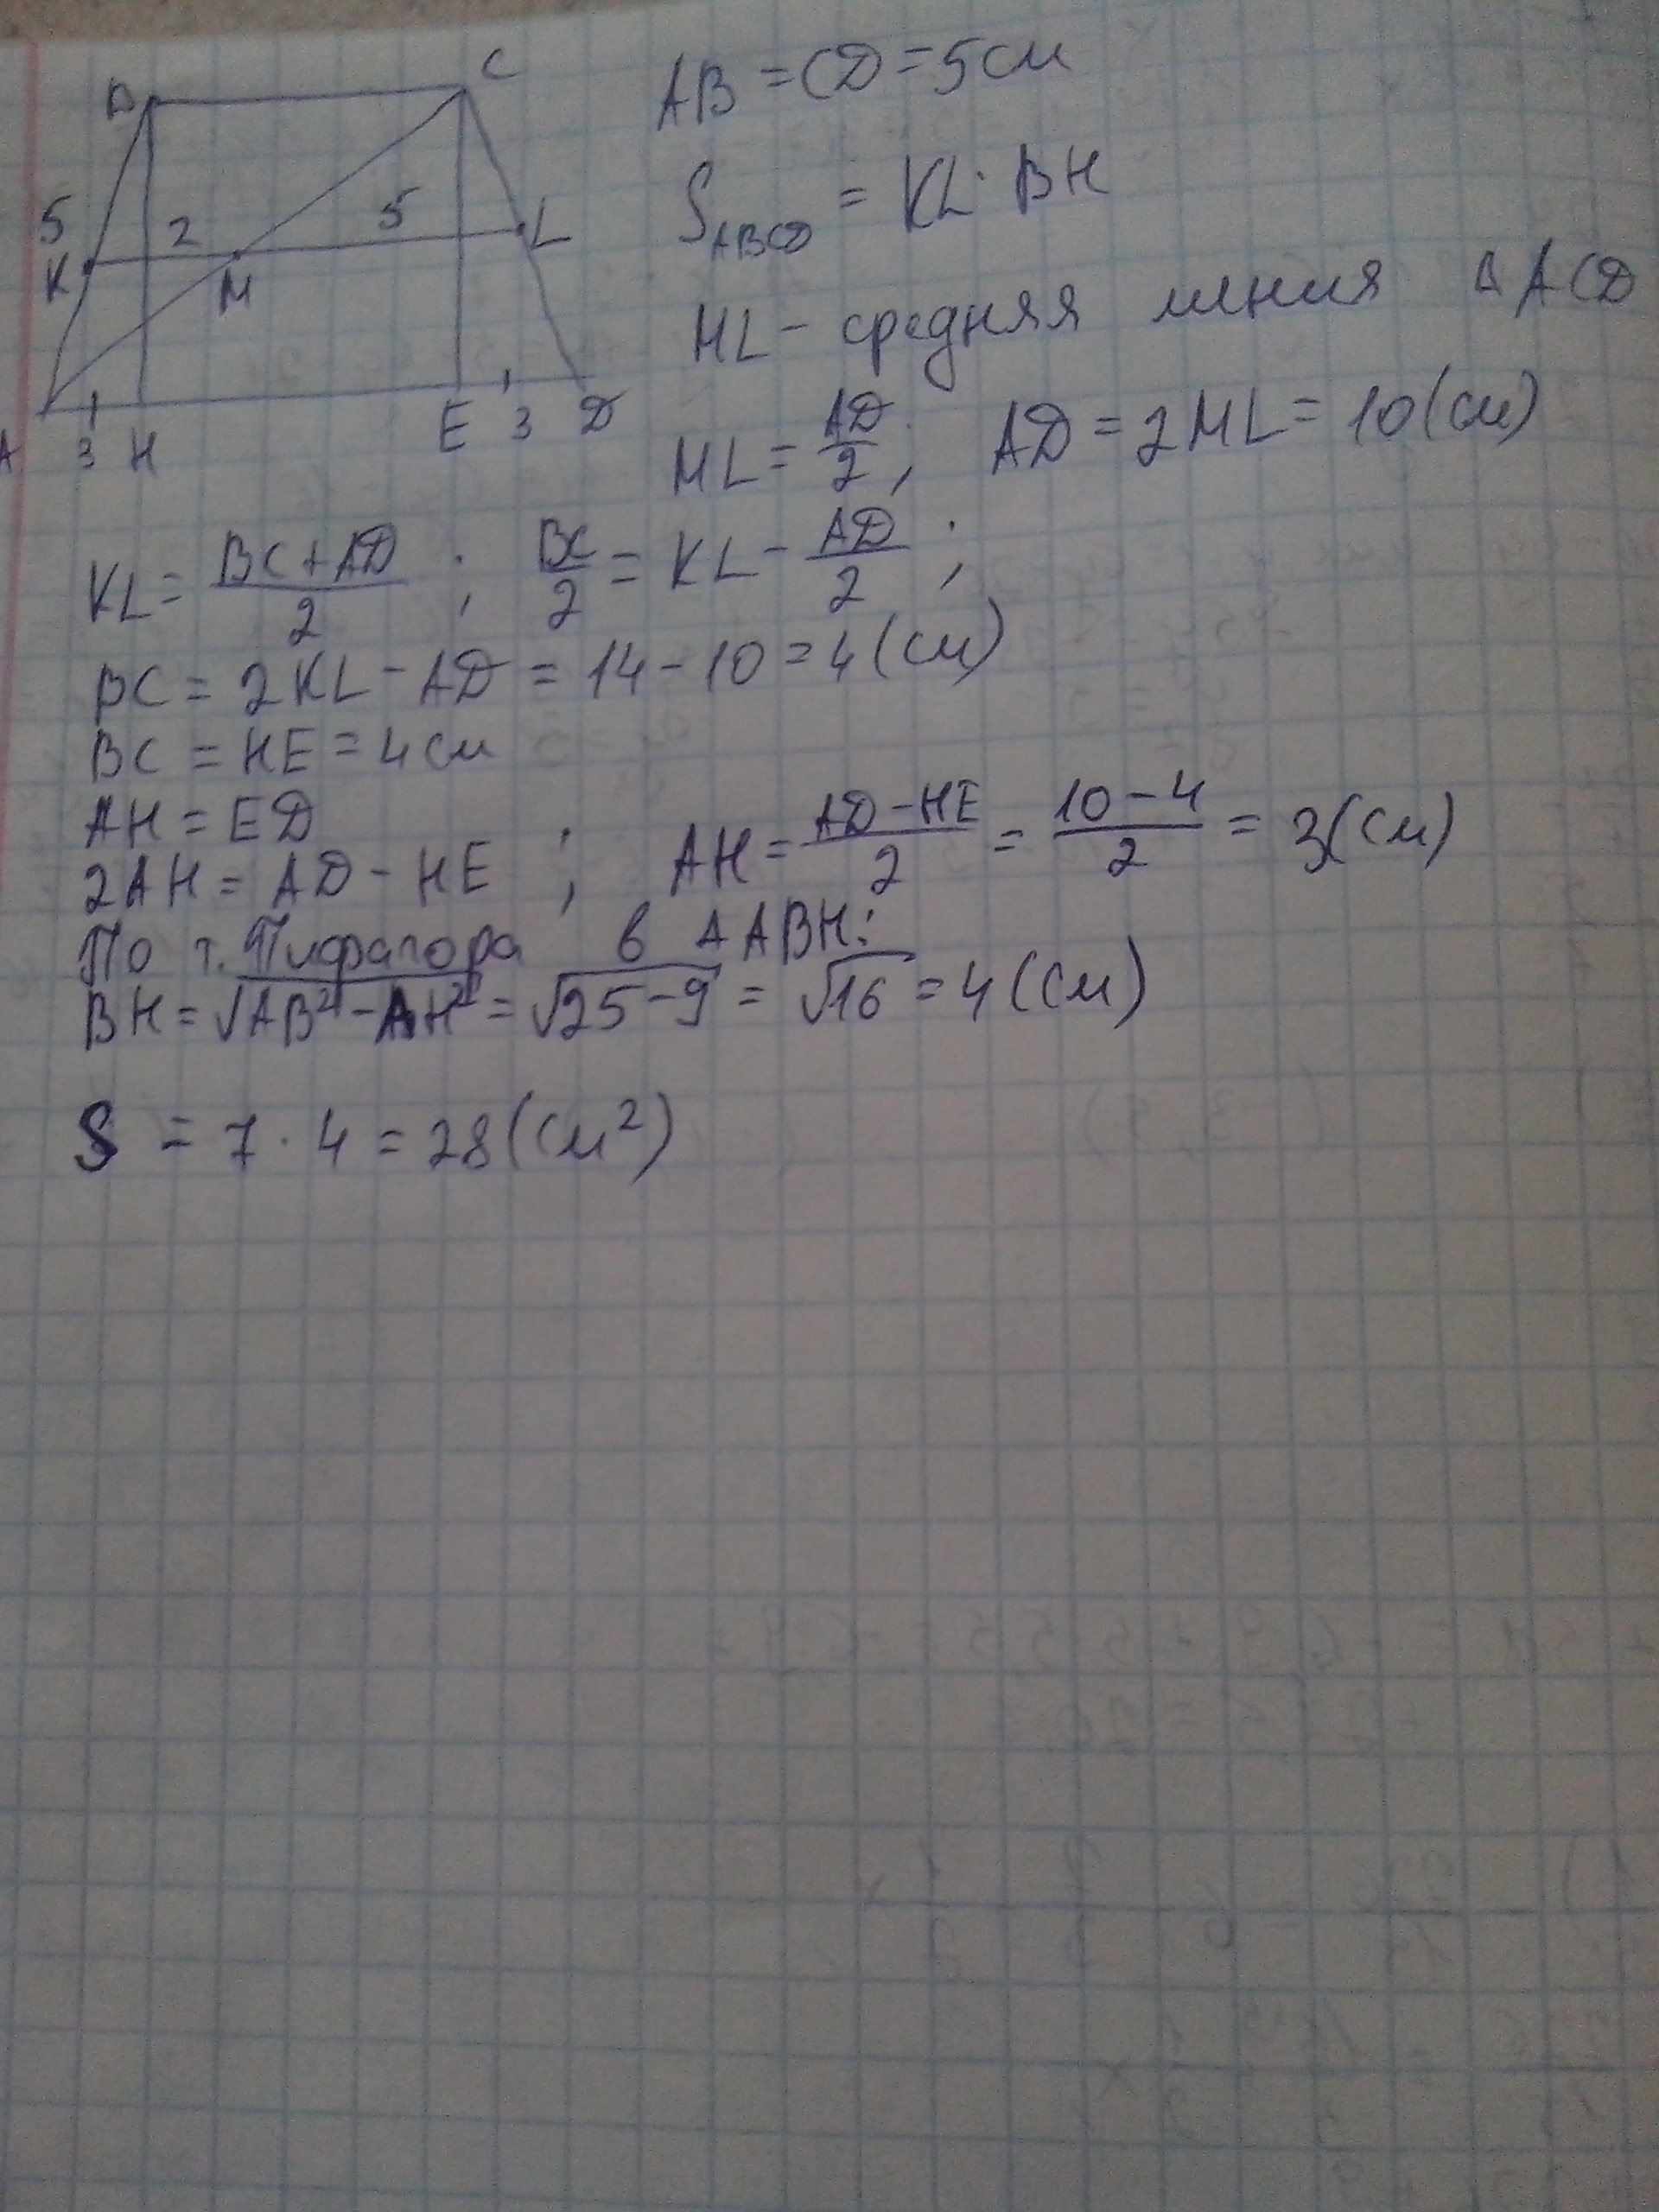 B C
5 2 5 L
K M
A 3 H E 3 D
AB = CD = 5 см
S_ABCD = KL · BH
ML - средняя линия △ACD
ML = AD/2, AD = 2ML = 10 (см)
KL = (BC + AD)/2 ; BC/2 = KL - AD/2 ;
BC = 2KL - AD = 14 - 10 = 4 (см)
BC = HE = 4 см
AH = ED
2AH = AD - HE ; AH = (AD - HE)/2 = (10 - 4)/2 = 3 (см)
По т. Пифагора в △ABH:
BH = √(AB² - AH²) = √(25 - 9) = √16 = 4 (см)
S = 7 · 4 = 28 (см²)